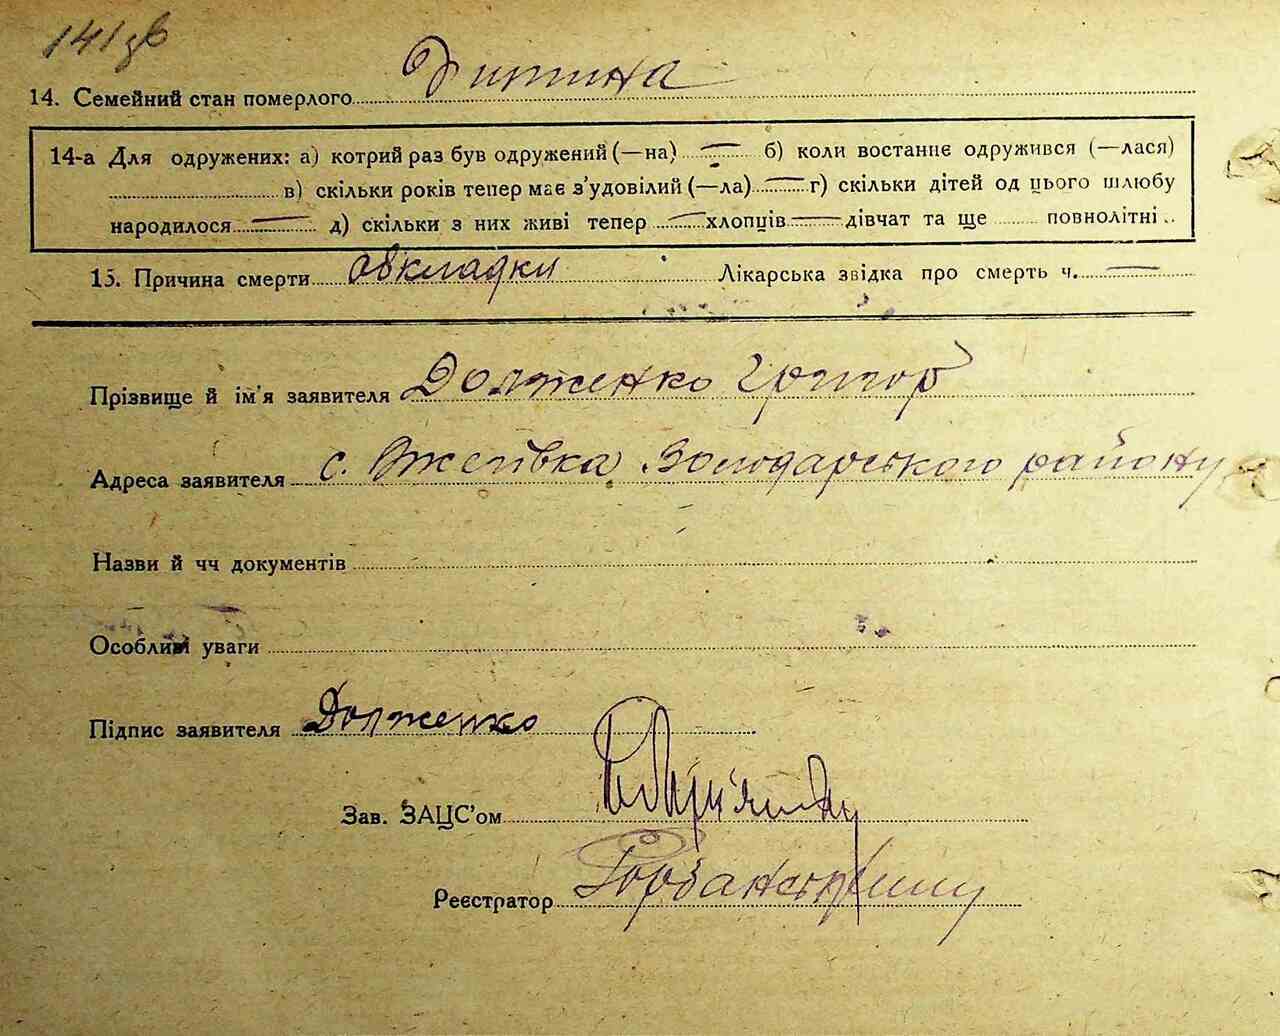 141зв
14. Семейний стан померлого Дитина
14-а Для одружених: а) котрий раз був одружений (—на) — б) коли востаннє одружився (—лася)
в) скільки років тепер має з'удовілий (—ла) — г) скільки дітей од цього шлюбу
народилося — д) скільки з них живі тепер — хлопців — дівчат та ще повнолітні
15. Причина смерти обкладки Лікарська звідка про смерть ч. —
Прізвище й ім'я заявителя Долженко Григор
Адреса заявителя с. Володарського району
Назви й чч документів
Особливі уваги
Підпис заявителя Долженко
Зав. ЗАЦС'ом
Реєстратор